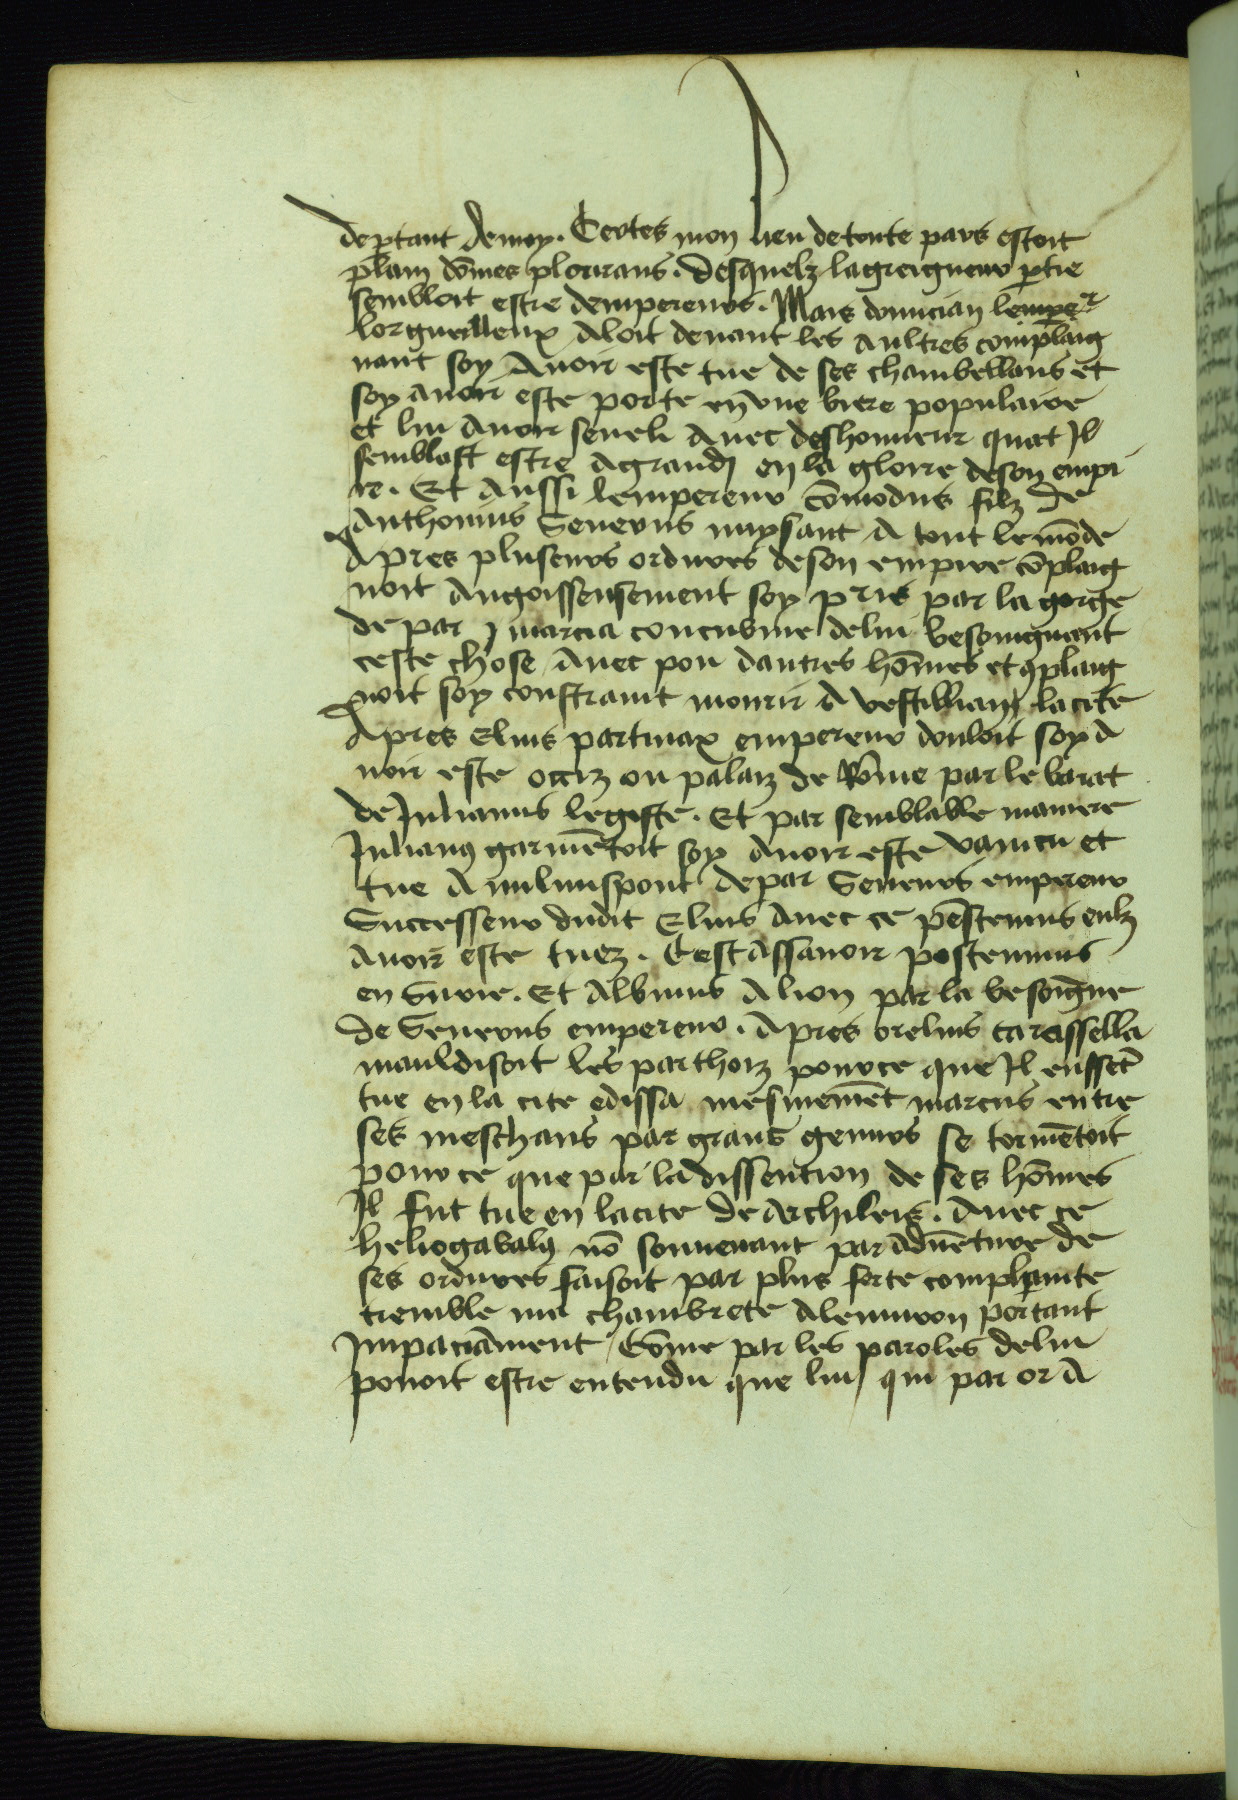 deptant demoy. Certes mon lieu de toute pars estoit
plain dōmes plourans. desquelz la greigneur ptie
sembloit estre dempereurs. Mais domician lemper
lorgueilleux Aloit deuant les aultres complaig
nant soy Auoir este tue de ses chambellans et
soy auoir este porte en vne biere populaire
et lui Auoir seueli Auec deshonneur quāt Il
semblast estre agrandi en la gloire de son empi
re. Et Aussi lempereur cōmodus filz de
Anthonius Seuerus nuysant A tout le mōde
Apres pluseurs ordures de son empire cōplaig
noit Angoisseusement soy pris par la gorge
de par marcia concubine de lui besoingnant
ceste chose Auec pou dautres hōmes et cplaig
noit soy constraint mourir A vestilliani la cite
Apres Elius partinax empereur douloit soy A
uoir este occiz ou palaiz de Rōme par le barat
de Julianus legiste. Et par semblable maniere
Julian9 garmētoit soy Auoir este vaincu et
tue A miluinspont de par Seuerus empereur
Successeur dudit Elius Auec ce pēstennius eulz
Auoir este tuez. Cest Assauoir postennius
en Surie. Et Albinus A lion par la besoigne
de Seuerus empereur. Apres orelius carassella
mauldisoit les parthoiz pource que Il eusset
tue en la cite edissa mesmemēt marcus entre
ses meschans par grans gemirs se tormētoit
pource que par la dissention de ses hōmes
Il fut tue en la cite de Archileis. Auec ce
heliogabal9 nō souuenant par aduēture de
ses ordures faisoit par plus forte complainte
tremble ma chambrete Alenuiron portant
Impaciāment Cōme par les paroles de lui
pouoit estre entendu que lui qui par or A